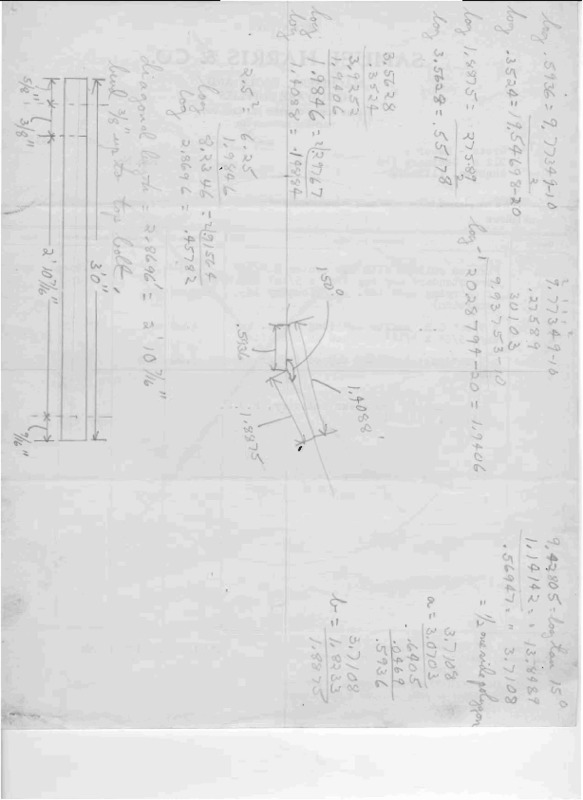 log .5936 = 9.77349-10
2
log .3524 = 19.54698-20
log 1.8875 = .27589
2
log 3.5628 = .55178
3.5628
.3524
3.9252
1.9406
log 1.9846 = .29767
log 1.4088 = .14884
2.5² = 6.25
1.9846
log 8.2346 = .91564
log 2.8696 = .45782
diagonal length = 2.8696' = 2' 10 7/16"
bend 3/8" up to top bolt.
9.77349-10
.27589
.30103
9.93753-10
log⁻¹ 20.28794-20 = 1.9406
150°
1.4088'
.5936
1.8875
9.42805 = log tan 15°
1.14142 = " 13.8489
.56947 = " 3.7108
= 1/2 one side polygon
3.7108
a = 3.0703
.6405
.0469
.5936
3.7108
b = 1.8233
1.8875
3'0"
2'10 7/16"
5/8" 3/8"
9/16"